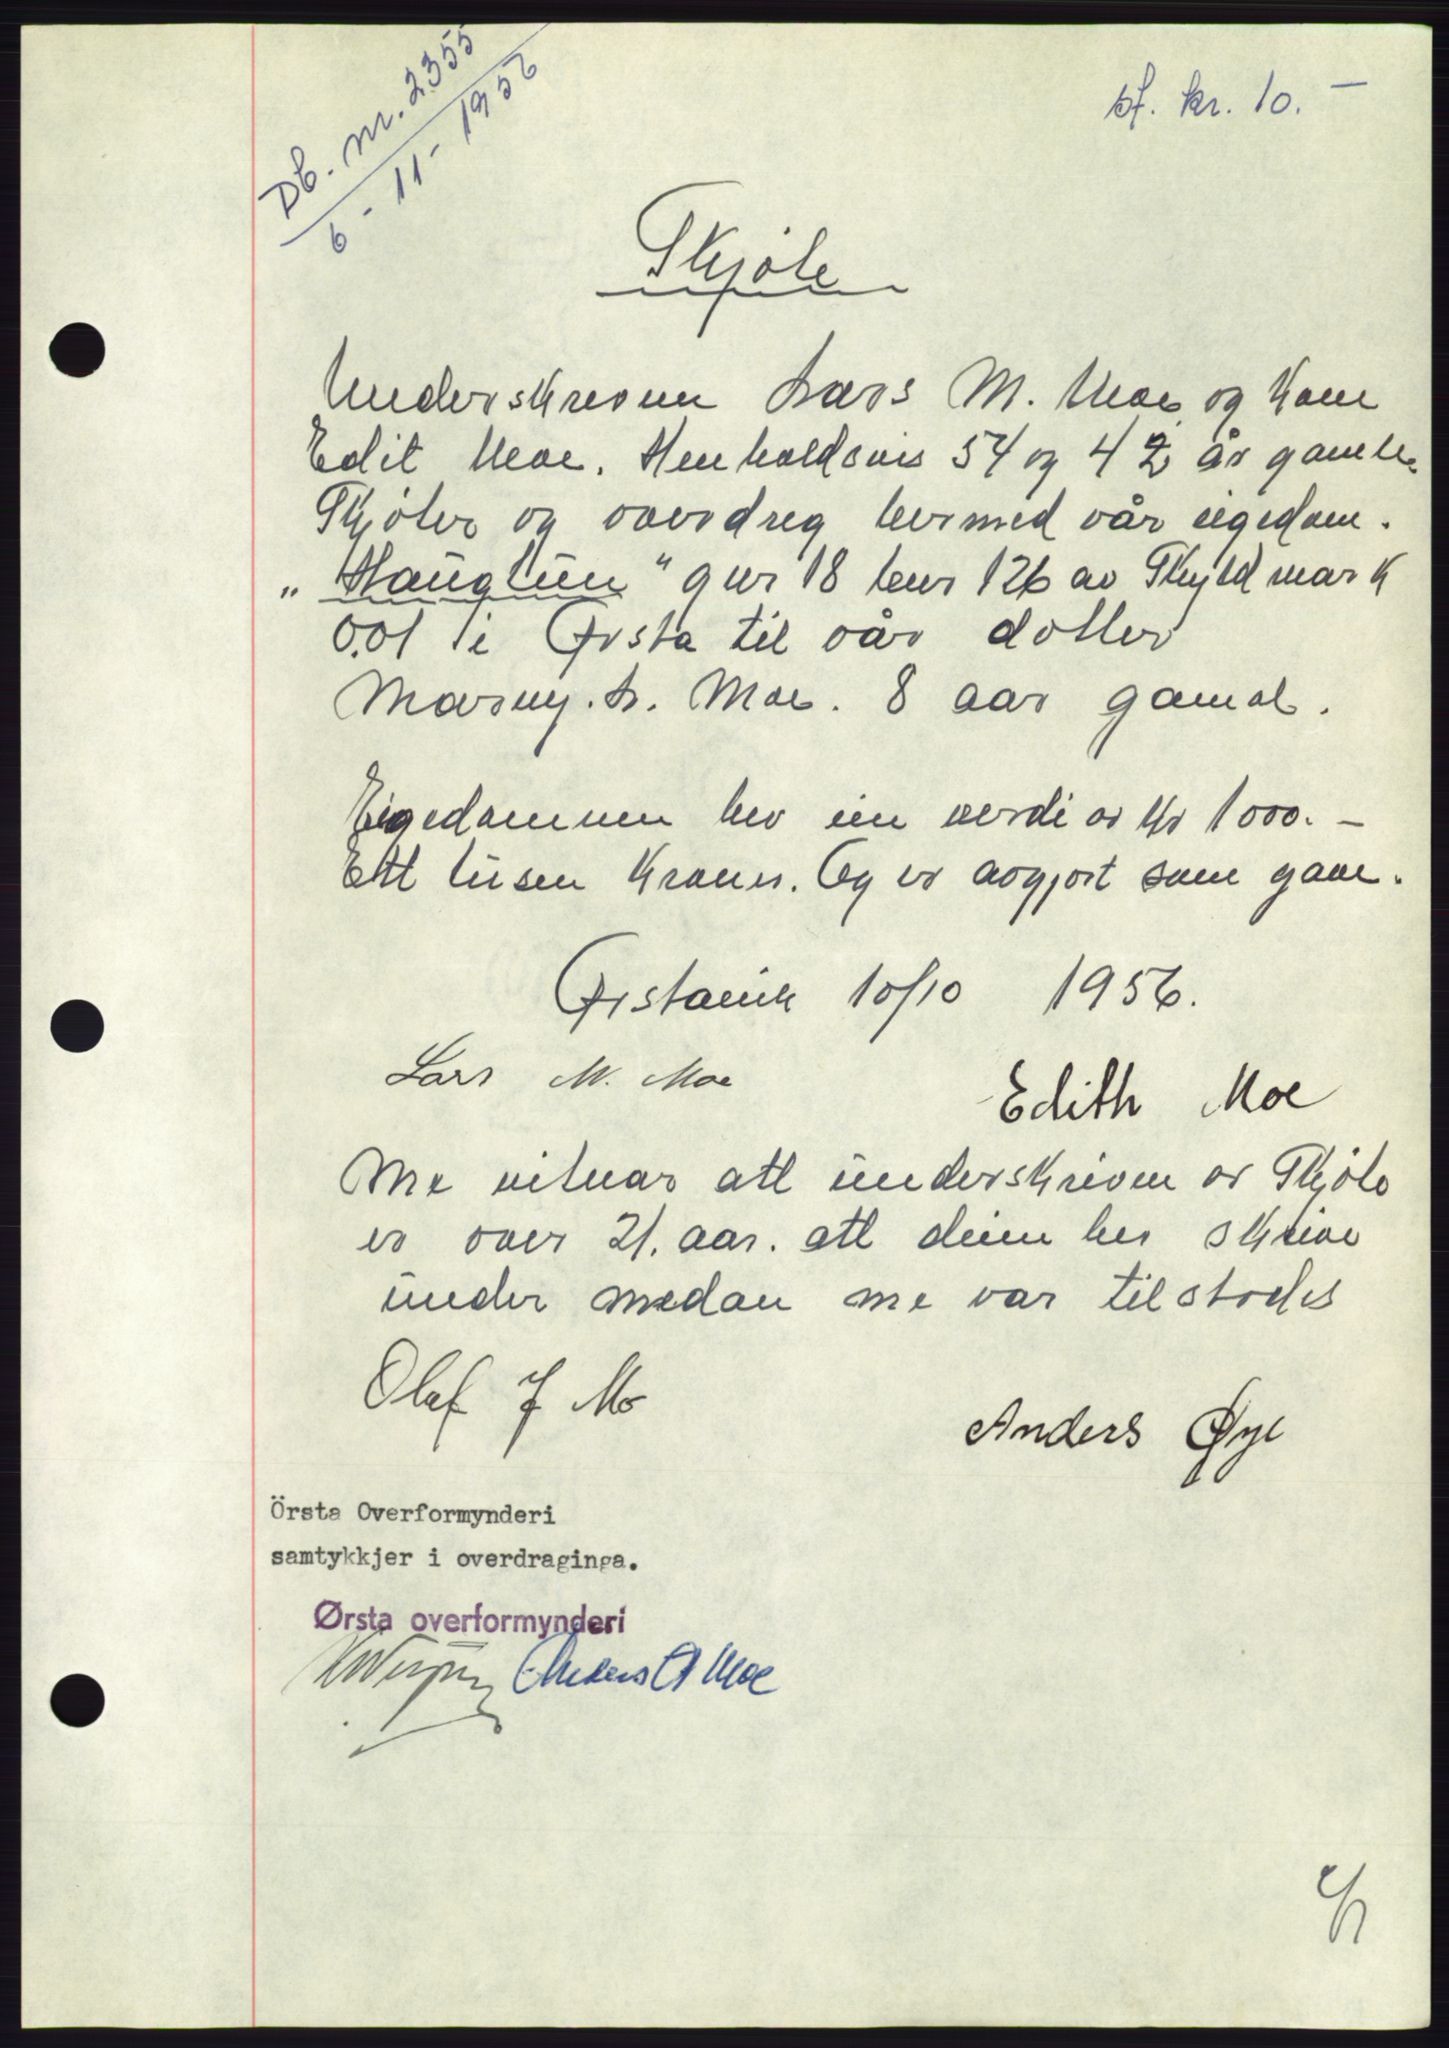 Db. nr. 2355
6-11-1956
st. kr. 10.-
Skjöte
Underskreven Lars M. Moe og Kone
Edit Moe. Henholdsvis 54 og 42 år gamle.
Skjöter og overdreg hermed vår eigedom.
"Haugtun" gnr 18 bnr 126 av Skyldmark
0.01 i Ørsta til vår dotter
Marny. L. Moe. 8 aar gamal.
Eigedommen hev ein verdi av kr 1000.-
Ett tusen Kroner. Og er avgjort som gave.
Ørstavik 10/10 1956.
Lars M. Moe
Edith Moe
Me vitnar att underskriven av Skjöte
er over 21. aar. att deim hev skrive
under medan me var tilstodes
Olaf J Mo
Anders Øye
Örsta Overformynderi
samtykkjer i overdraginga.
Ørsta overformynderi
Anders A Moe